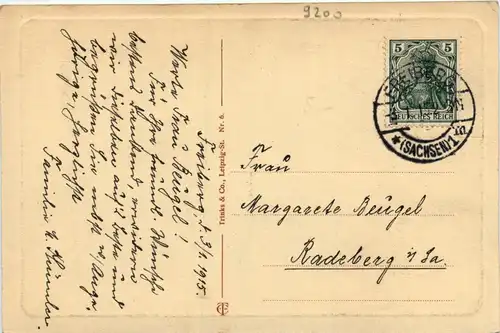 9200
Freiberg, d. 3/1. 1915.
Werte Frau Beugel!
Für Ihre freundl. Wünsche
bestens dankend, erwidern
wir dieselben aufs beste und
begrüßen Sie nebst w. Ange-
hörige, herzlichst
Familie
Trinks & Co., Leipzig-St. Nr. 6.
5 5
DEUTSCHES REICH
FREIBERG
*(SACHSEN)1
Frau
Margarete Beugel
Radeberg i/Sa.